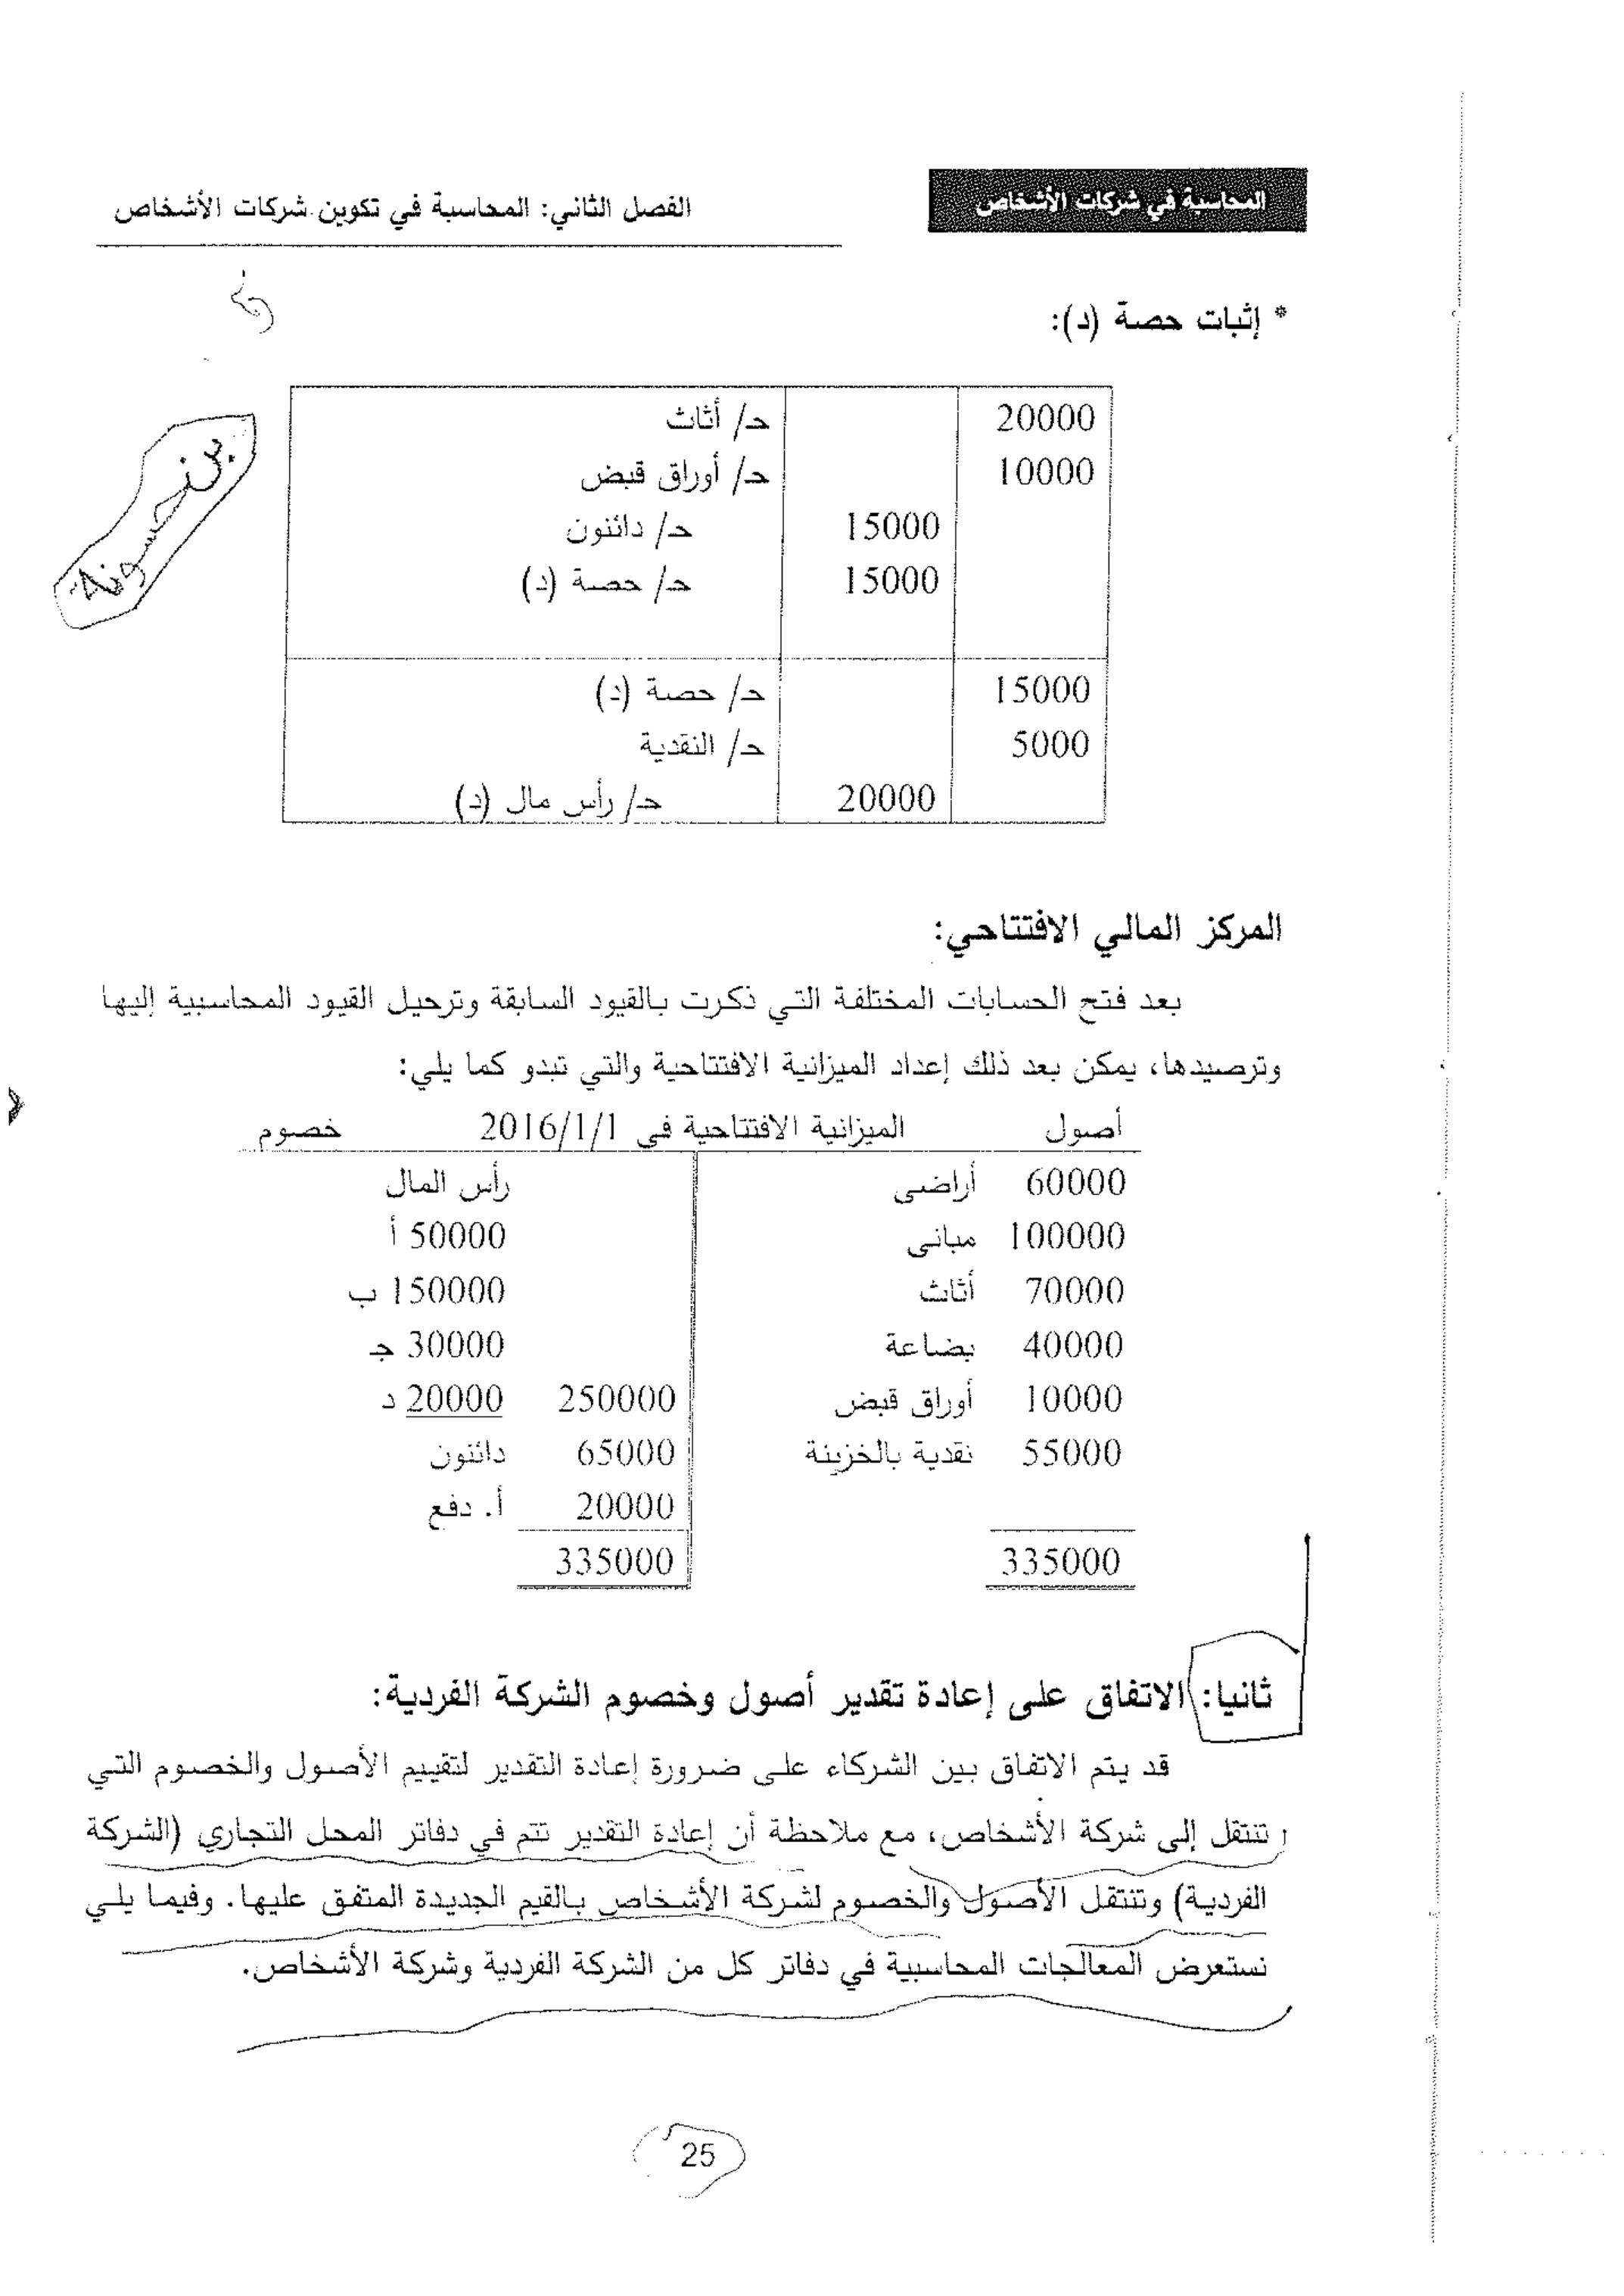 المحاسبة في شركات الأشخاص
الفصل الثاني: المحاسبة في تكوين شركات الأشخاص
* إثبات حصة (د):
بن حسونة
20000 حـ/ أثاث
10000 حـ/ أوراق قبض
15000 حـ/ دائنون
15000 حـ/ حصة (د)
15000 حـ/ حصة (د)
5000 حـ/ النقدية
20000 حـ/ رأس مال (د)
المركز المالي الافتتاحي:
بعد فتح الحسابات المختلفة التي ذكرت بالقيود السابقة وترحيل القيود المحاسبية إليها
وترصيدها، يمكن بعد ذلك إعداد الميزانية الافتتاحية والتي تبدو كما يلي:
أصول الميزانية الافتتاحية في 2016/1/1 خصوم
60000 أراضى رأس المال
100000 مبانى 50000 أ
70000 أثاث 150000 ب
40000 بضاعة 30000 جـ
10000 أوراق قبض 250000 20000 د
55000 نقدية بالخزينة 65000 دائنون
20000 أ. دفع
335000 335000
ثانيا: الاتفاق على إعادة تقدير أصول وخصوم الشركة الفردية:
قد يتم الاتفاق بين الشركاء على ضرورة إعادة التقدير لتقييم الأصول والخصوم التي
تنتقل إلى شركة الأشخاص، مع ملاحظة أن إعادة التقدير تتم في دفاتر المحل التجاري (الشركة
الفردية) وتنتقل الأصول والخصوم لشركة الأشخاص بالقيم الجديدة المتفق عليها. وفيما يلي
نستعرض المعالجات المحاسبية في دفاتر كل من الشركة الفردية وشركة الأشخاص.
25